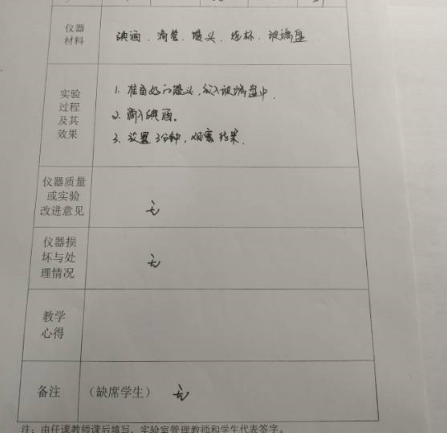 仪器
材料
碘酒、滴管、馒头、烧杯、玻璃盘
实验
过程
及其
效果
1. 准备好的馒头,放入玻璃盘中.
2. 滴入碘酒。
3. 放置3分钟,观察结果.
仪器质量
或实验
改进意见
无
仪器损
坏与处
理情况
无
教学
心得
备注
(缺席学生) 无
注:由任课教师课后填写,实验室管理教师和学生代表签字。